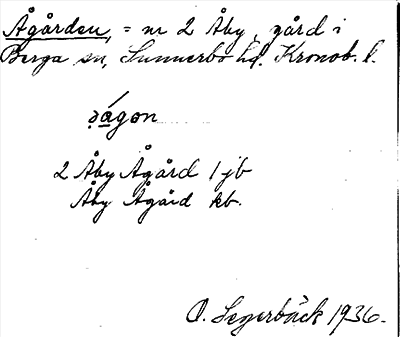 Ågården, = nr 2 Åby, gård i
Berga sn, Sunnerbo hd. Kronob. l.
2 Åby Ågård 1 jb
Åby Ågård kb.
O. Segerbäck 1936.